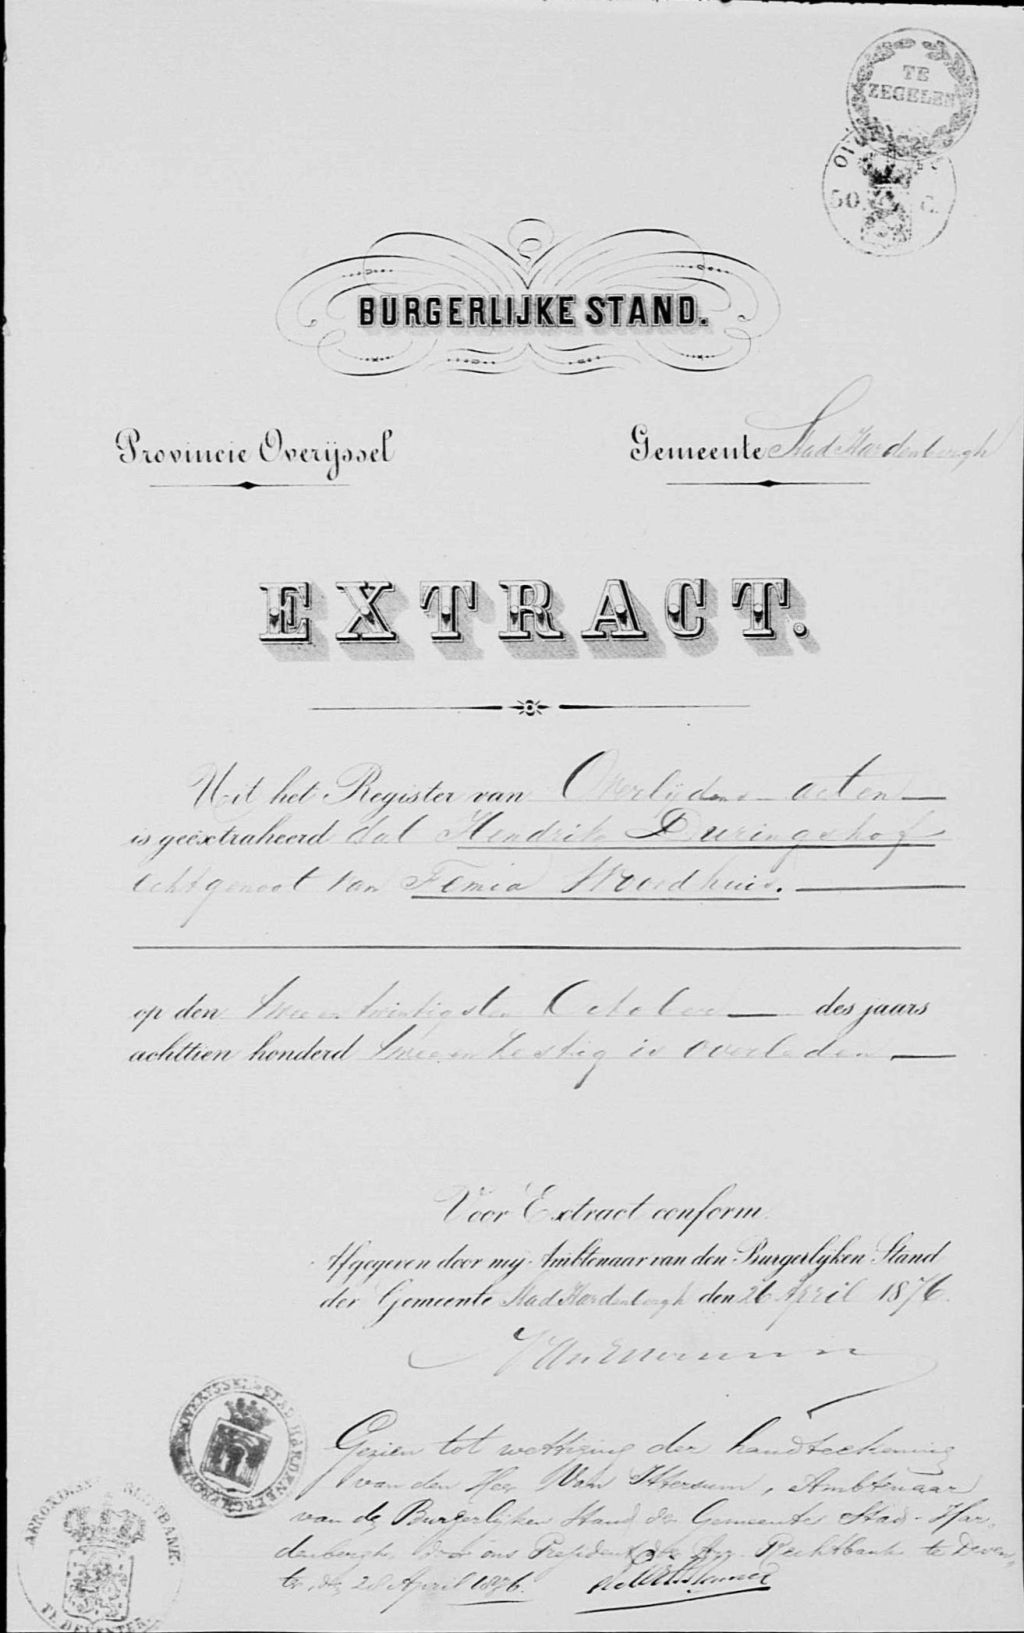 TE
ZEGELEN
50 C.
BURGERLIJKE STAND.
Provincie Overijssel
Gemeente Stad Hardenbergh
EXTRACT.
Uit het Register van Overlijdens acten
is geëxtraheerd dat Hendrik Duringshof
echtgenoot van Femia
op den twee en twintigsten October des jaars
achttien honderd twee en zestig is overleden
Voor Extract conform.
Afgegeven door mij Ambtenaar van den Burgerlijken Stand
der Gemeente Stad Hardenbergh den 26 April 1876.
Gezien tot wettiging der handteekening
van den Heer Van Ittersum, Ambtenaar
van den Burgerlijken Stand der Gemeente Stad-Har-
denbergh, door ons President der Arr. Rechtbank te Deven-
ter, den 28 April 1876.
ARRONDISS. RECHTBANK
TE DEVENTER